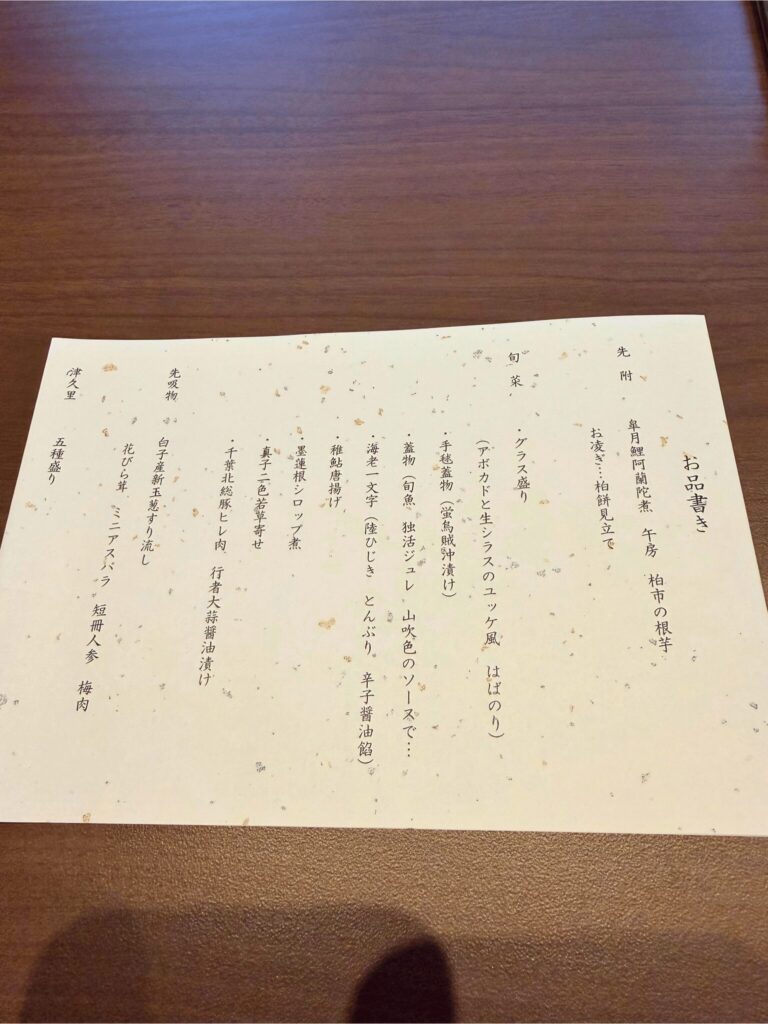 お品書き
先附
皐月鯉阿蘭陀煮 午房 柏市の根芋
お凌ぎ…柏餅見立て
旬菜
・グラス盛り
(アボカドと生シラスのユッケ風 はばのり)
・手毬蓋物(蛍烏賊沖漬け)
・蓋物(旬魚 独活ジュレ 山吹色のソースで…
・海老一文字(陸ひじき とんぶり 辛子醤油餡)
・稚鮎唐揚げ
・墨蓮根シロップ煮
・真子二色若草寄せ
・千葉北総豚ヒレ肉 行者大蒜醤油漬け
先吸物
白子産新玉葱すり流し
花びら茸 ミニアスパラ 短冊人参 梅肉
津久里
五種盛り